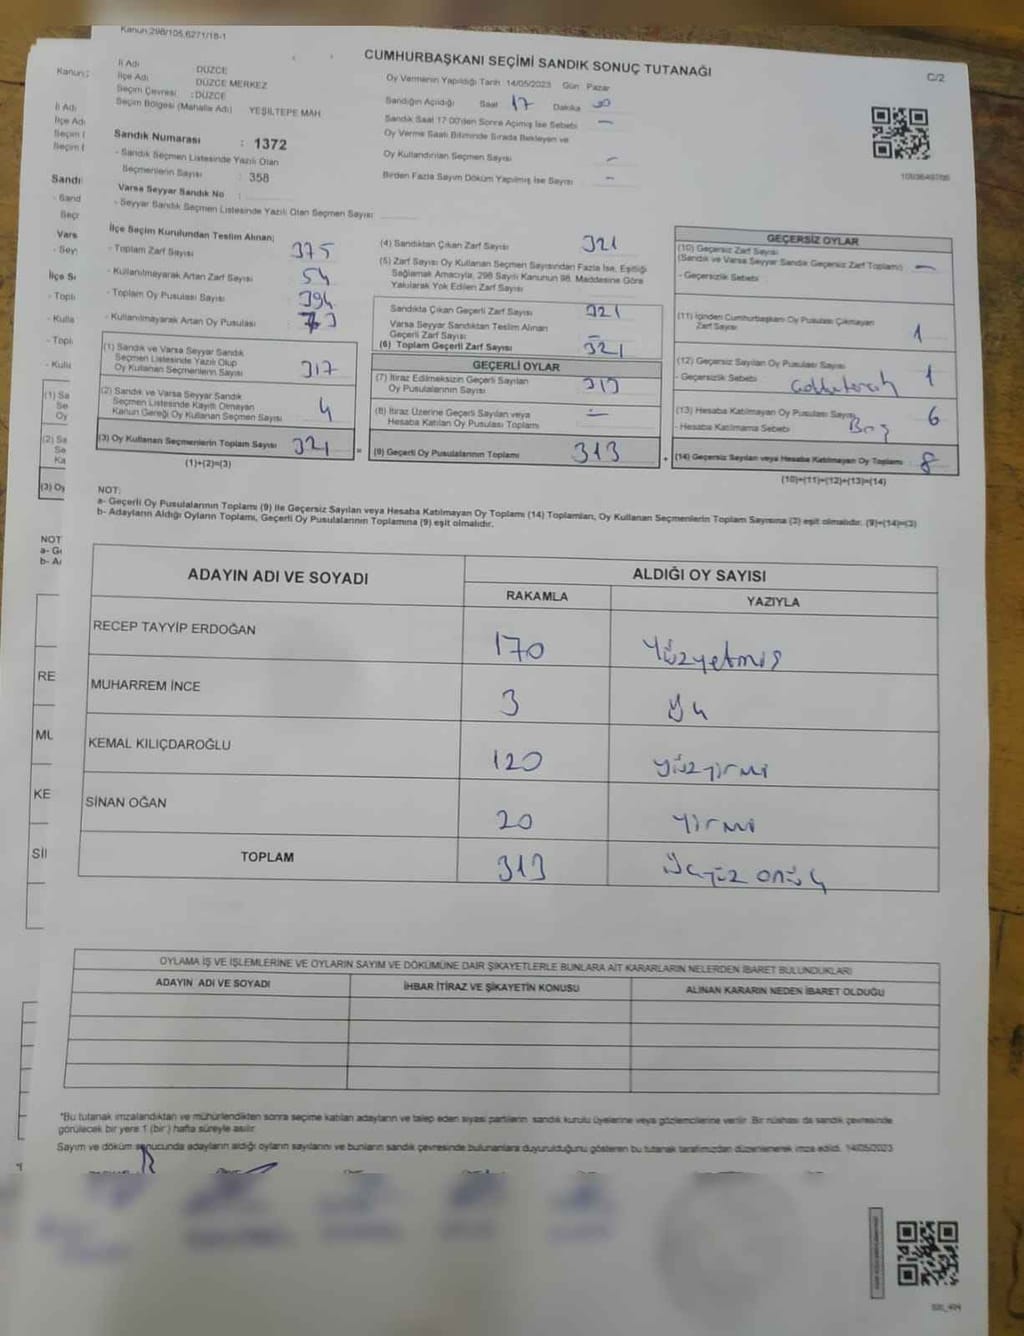 Kanun,298/105,6271/18-1
CUMHURBAŞKANI SEÇİMİ SANDIK SONUÇ TUTANAĞI
C/2
İl Adı DÜZCE
İlçe Adı DÜZCE MERKEZ
Seçim Çevresi : DÜZCE
Seçim Bölgesi (Mahalle Adı) YEŞİLTEPE MAH
Sandık Numarası : 1372
- Sandık Seçmen Listesinde Yazılı Olan
Seçmenlerin Sayısı : 358
Varsa Seyyar Sandık No :
- Seyyar Sandık Seçmen Listesinde Yazılı Olan Seçmen Sayısı:
Oy Vermenin Yapıldığı Tarih 14/05/2023 Gün Pazar
Sandığın Açıldığı Saat 17 Dakika 30
Sandık Saat 17.00'den Sonra Açılmış İse Sebebi –
Oy Verme Saati Bitiminde Sırada Bekleyen ve
Oy Kullandırılan Seçmen Sayısı –
Birden Fazla Sayım Döküm Yapılmış İse Sayısı –
İlçe Seçim Kurulundan Teslim Alınan;
- Toplam Zarf Sayısı : 375
- Kullanılmayarak Artan Zarf Sayısı : 54
- Toplam Oy Pusulası Sayısı : 394
- Kullanılmayarak Artan Oy Pusulası : 73
(1) Sandık ve Varsa Seyyar Sandık
Seçmen Listesinde Yazılı Olup
Oy Kullanan Seçmenlerin Sayısı 317
(2) Sandık ve Varsa Seyyar Sandık
Seçmen Listesinde Kayıtlı Olmayan
Kanun Gereği Oy Kullanan Seçmen Sayısı 4
(3) Oy Kullanan Seçmenlerin Toplam Sayısı 321
(1)+(2)=(3)
(4) Sandıktan Çıkan Zarf Sayısı 321
(5) Zarf Sayısı Oy Kullanan Seçmen Sayısından Fazla İse, Eşitliği
Sağlamak Amacıyla, 298 Sayılı Kanunun 98. Maddesine Göre
Yakılarak Yok Edilen Zarf Sayısı
Sandıkta Çıkan Geçerli Zarf Sayısı 321
Varsa Seyyar Sandıktan Teslim Alınan
Geçerli Zarf Sayısı –
(6) Toplam Geçerli Zarf Sayısı 321
GEÇERLİ OYLAR
(7) İtiraz Edilmeksizin Geçerli Sayılan
Oy Pusulalarının Sayısı 313
(8) İtiraz Üzerine Geçerli Sayılan veya
Hesaba Katılan Oy Pusulası Toplamı –
(9) Geçerli Oy Pusulalarının Toplamı 313
GEÇERSİZ OYLAR
(10) Geçersiz Zarf Sayısı
(Sandık ve Varsa Seyyar Sandık Geçersiz Zarf Toplamı) –
- Geçersizlik Sebebi
(11) İçinden Cumhurbaşkanı Oy Pusulası Çıkmayan
Zarf Sayısı 1
(12) Geçersiz Sayılan Oy Pusulası Sayısı 1
- Geçersizlik Sebebi
(13) Hesaba Katılmayan Oy Pusulası Sayısı 6
- Hesaba Katılmama Sebebi Boş
(14) Geçersiz Sayılan veya Hesaba Katılmayan Oy Toplamı 8
(10)+(11)+(12)+(13)=(14)
NOT:
a- Geçerli Oy Pusulalarının Toplamı (9) ile Geçersiz Sayılan veya Hesaba Katılmayan Oy Toplamı (14) Toplamları, Oy Kullanan Seçmenlerin Toplam Sayısına (3) eşit olmalıdır. (9)+(14)=(3)
b- Adayların Aldığı Oyların Toplamı, Geçerli Oy Pusulalarının Toplamına (9) eşit olmalıdır.
ADAYIN ADI VE SOYADI ALDIĞI OY SAYISI
RAKAMLA YAZIYLA
RECEP TAYYİP ERDOĞAN 170 Yüzyetmiş
MUHARREM İNCE 3 Üç
KEMAL KILIÇDAROĞLU 120 Yüzyirmi
SİNAN OĞAN 20 Yirmi
TOPLAM 313 Üçyüz onüç
OYLAMA İŞ VE İŞLEMLERİNE VE OYLARIN SAYIM VE DÖKÜMÜNE DAİR ŞİKAYETLERLE BUNLARA AİT KARARLARIN NELERDEN İBARET BULUNDUKLARI
ADAYIN ADI VE SOYADI İHBAR İTİRAZ VE ŞİKAYETİN KONUSU ALINAN KARARIN NEDEN İBARET OLDUĞU
*Bu tutanak imzalandıktan ve mühürlendikten sonra seçime katılan adayların ve talep eden siyasi partilerin sandık kurulu üyelerine veya gözlemcilerine verilir. Bir nüshası da sandık çevresinde
görülecek bir yere 1 (bir) hafta süreyle asılır.
Sayım ve döküm sonucunda adayların aldığı oyların sayılarını ve bunların sandık çevresinde bulunanlara duyurulduğunu gösteren bu tutanak tarafımızdan düzenlenerek imza edildi. 14/05/2023